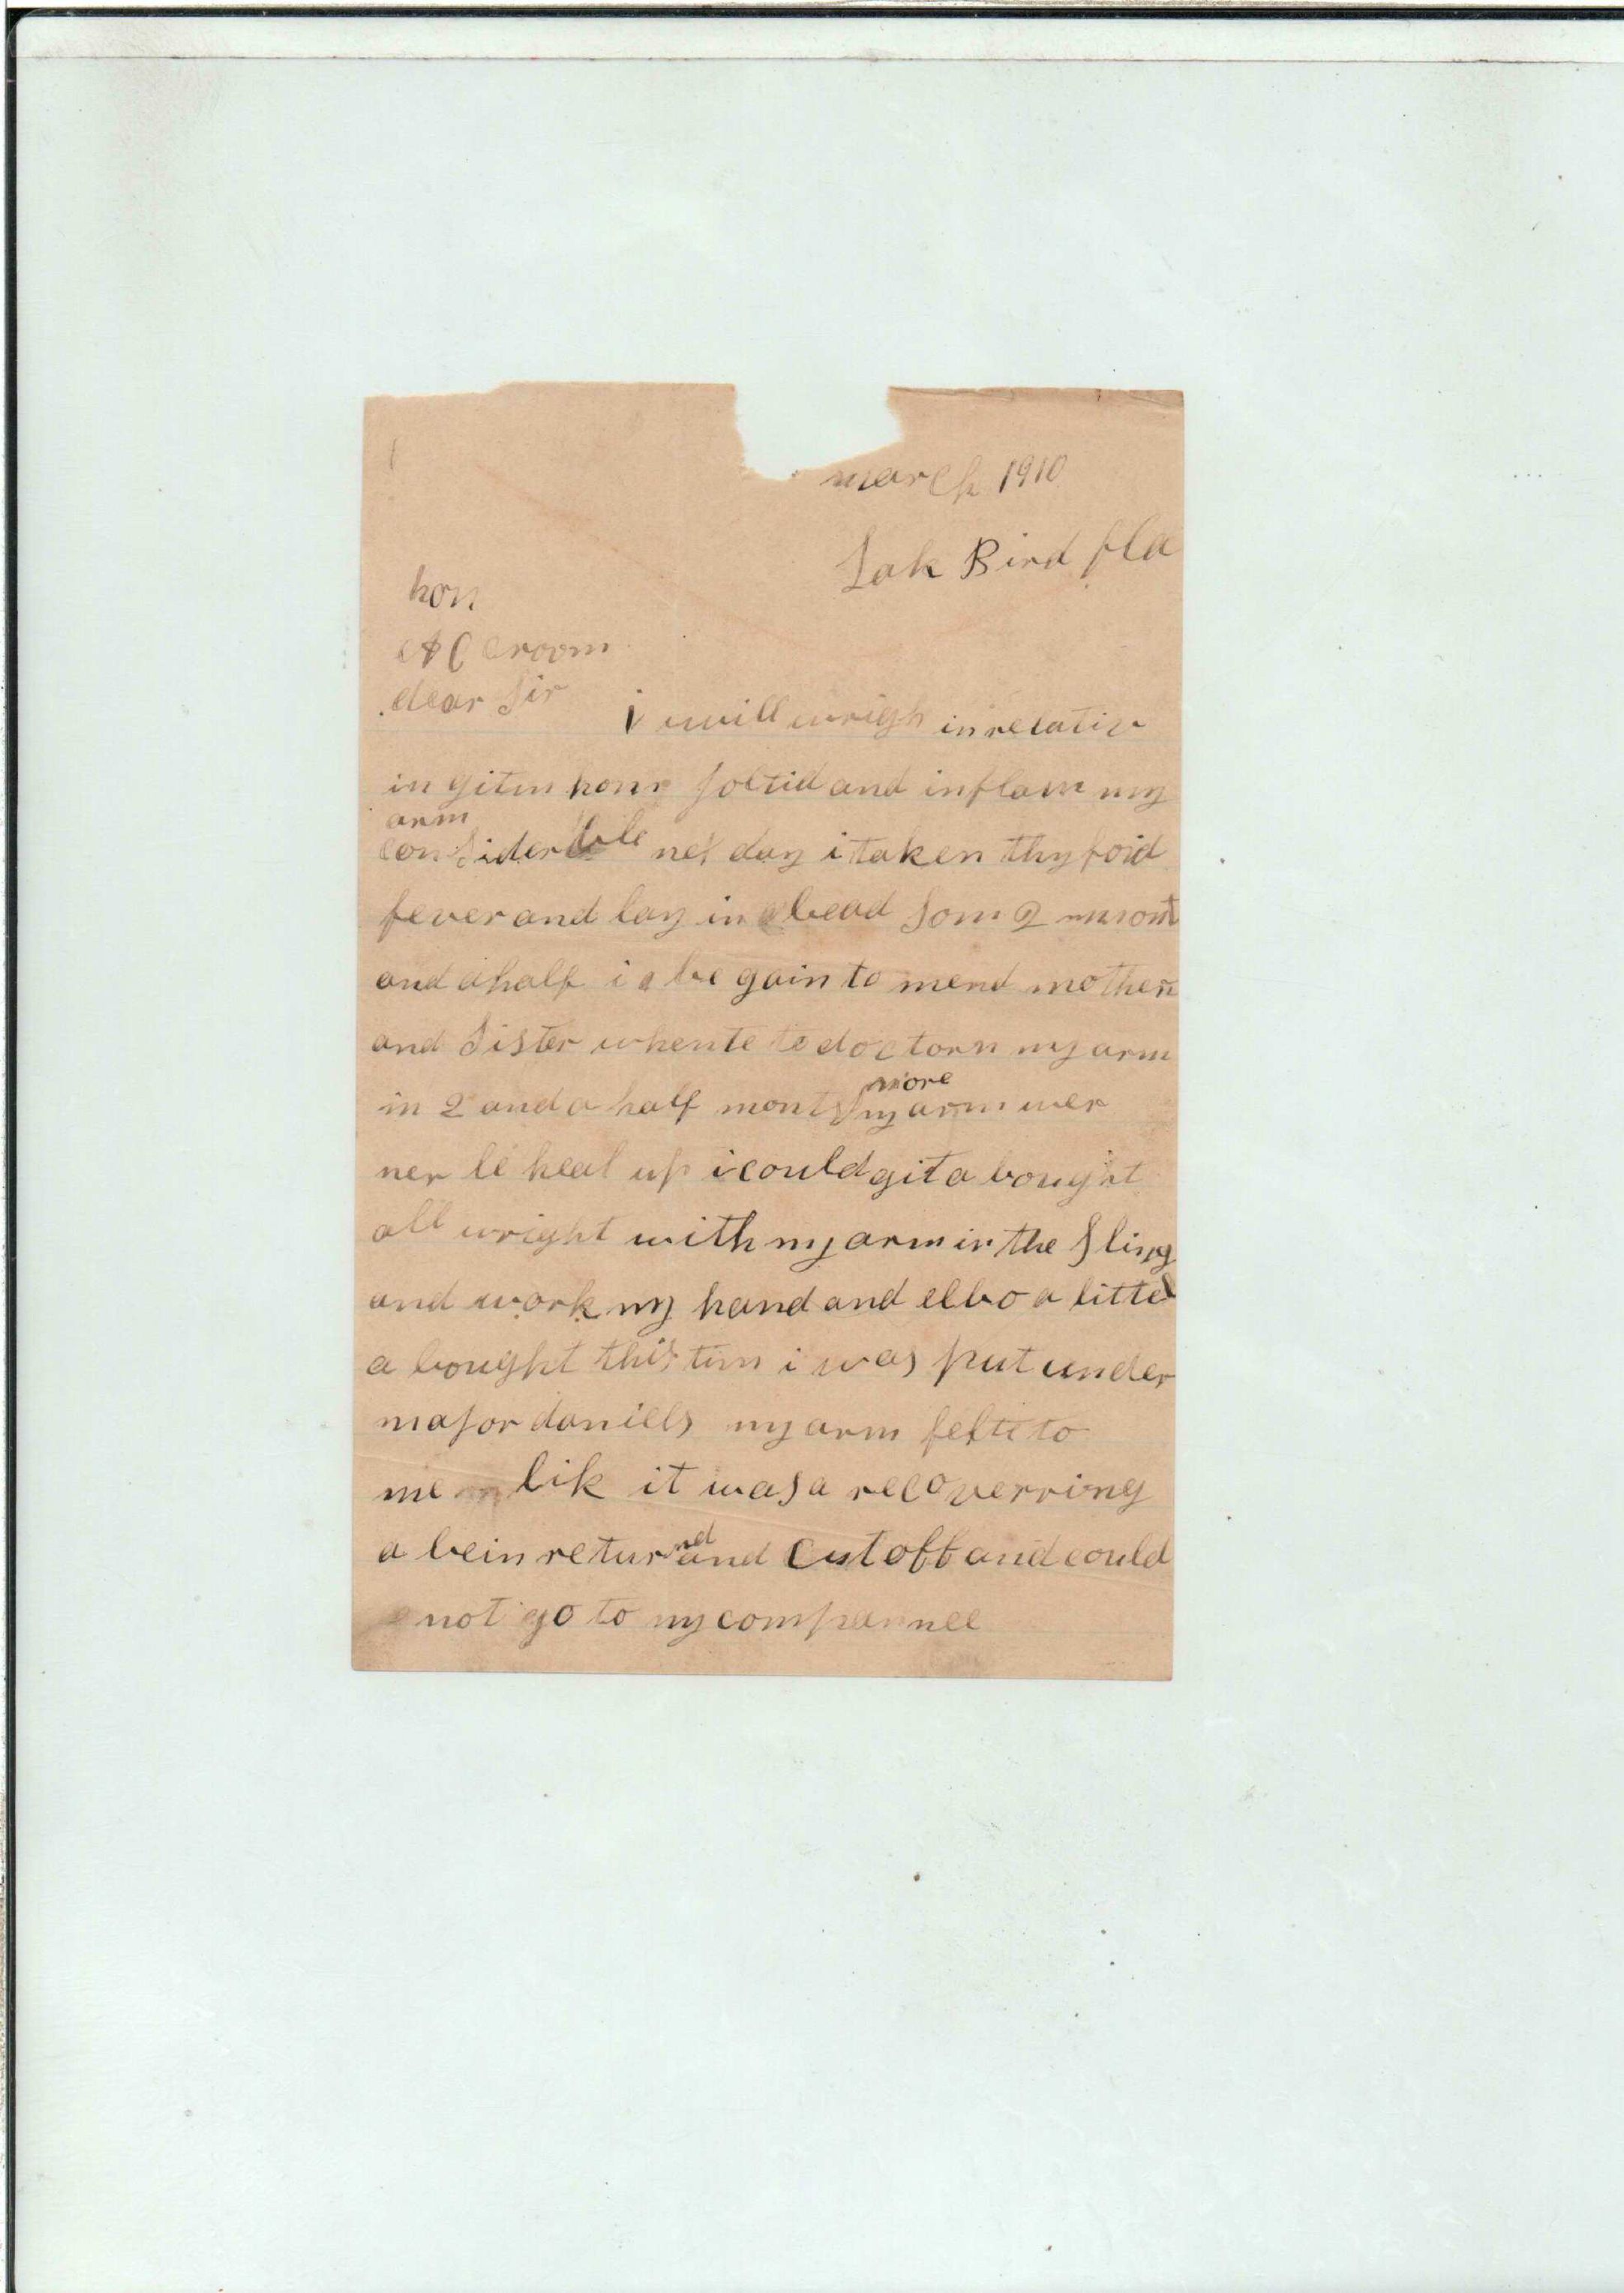 march 1910
Lak Bird fla
hon
A C Croom
dear Sir
i will wrigh in relativ
in gitin hom joltid and inflam my
arm
considerble nex day i taken thyfoid
fever and lay in a bead som 2 mont
and a half i be gain to mend mother
and Sister whente to doctorn my arm
more
in 2 and a half monts my arm wer
ner le heal up i could git a bought
all wright with my arm in the Sling
and work my hand and elbo a littel
a bought this tim i was put under
major daniells my arm felte to
me lik it was a recoverring
nd
a bein retur and Cut off and could
not go to my compannee